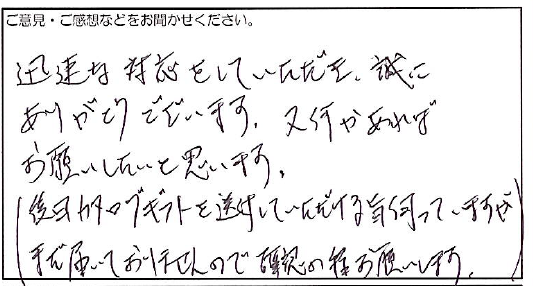 ご意見・ご感想などをお聞かせください。
迅速な対応をしていただき、誠に
ありがとうございます。又何かあれば
お願いしたいと思います。
(後日カタログギフトを送付していただける旨伺っていますが
まだ届いておりませんので確認の程お願いします。)